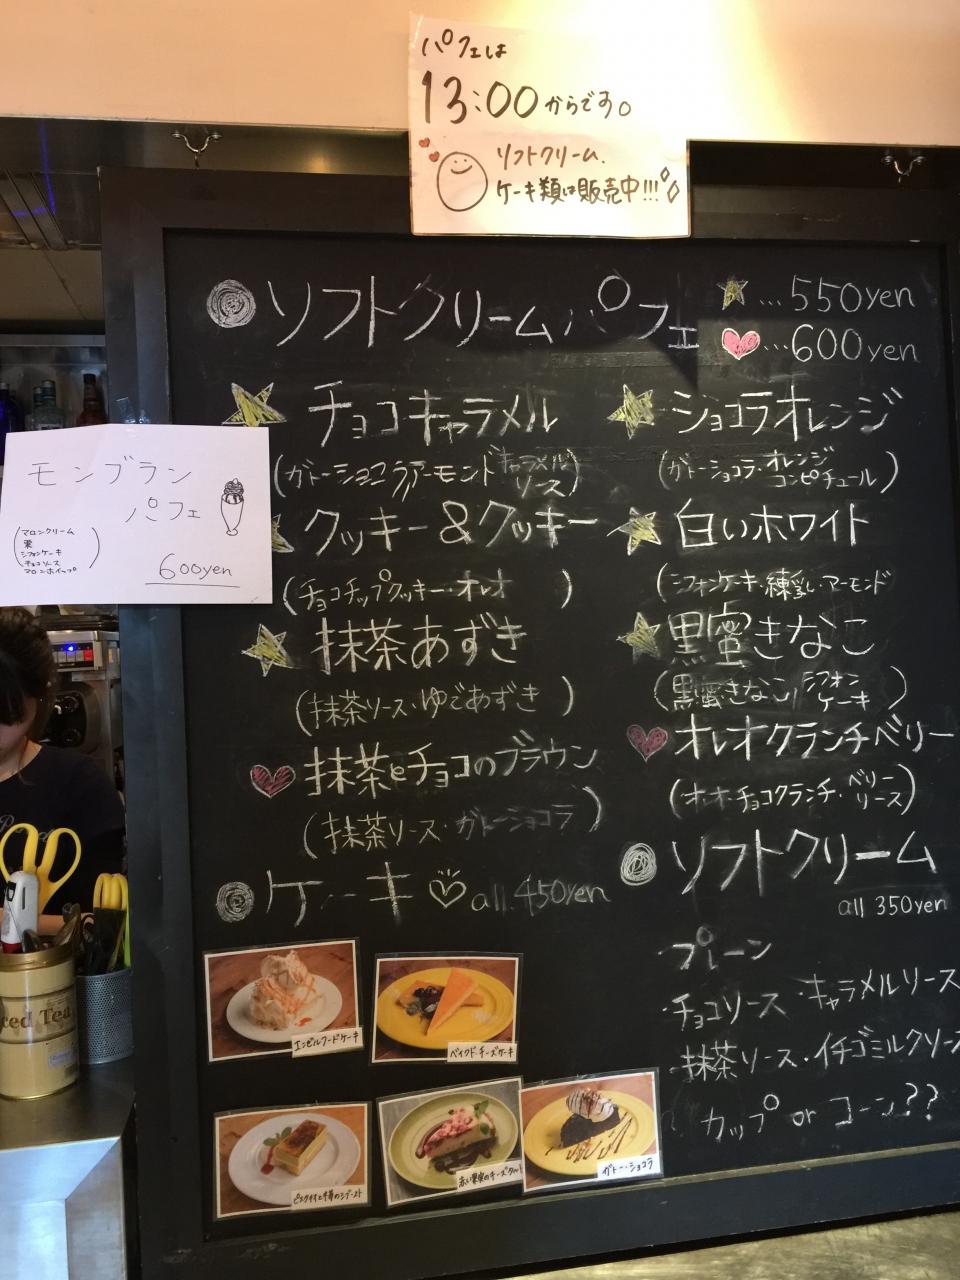 パフェは
13:00からです。
ソフトクリーム、
ケーキ類は販売中!!!
ソフトクリームパフェ
…550yen
…600yen
チョコキャラメル
(ガトーショコラ・アーモンド キャラメルソース)
クッキー&クッキー
(チョコチップクッキー・オレオ )
抹茶あずき
(抹茶ソース・ゆであずき )
抹茶eチョコのブラウン
(抹茶ソース・ガトーショコラ )
ショコラオレンジ
(ガトーショコラ・オレンジ
コンピチュール)
白いホワイト
(シフォンケーキ・練乳・アーモンド
黒蜜きなこ
(黒蜜きなこ/シフォン
ケーキ )
オレオクランチベリー
(オレオ・チョコクランチ・ベリー
ソース)
モンブラン
パフェ
(マロンクリーム
栗
シフォンケーキ
チョコソース
マロンホイップ)
600yen
ケーキ all 450yen
エンゼルフードケーキ
ベイクドチーズケーキ
赤い果実のチーズタルト
ガトーショコラ
ソフトクリーム
all 350yen
プレーン
・チョコソース ・キャラメルソース
・抹茶ソース・イチゴミルクソース
カップ or コーン??
ced Tea